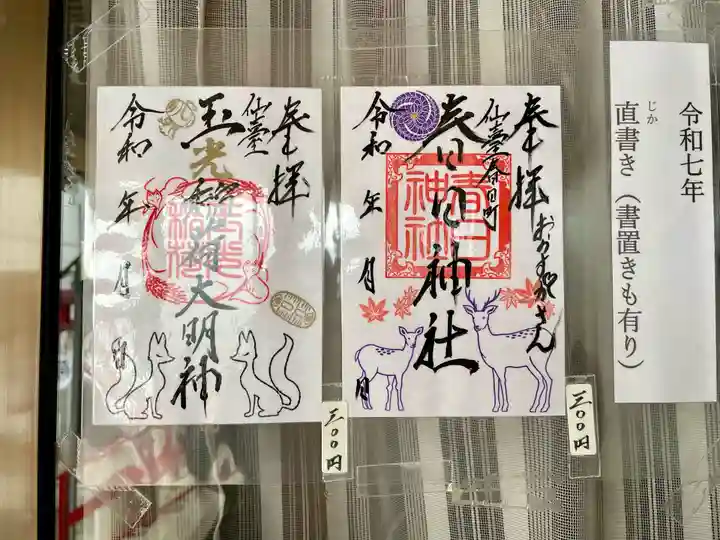 令和七年
直書き（書置きも有り）
じか
奉拝
おかすがさん
仙臺春日町
春日神社
令和 年 月 日
春日神社
三〇〇円
奉拝
仙臺
玉光稲荷大明神
令和 年 月 日
三〇〇円